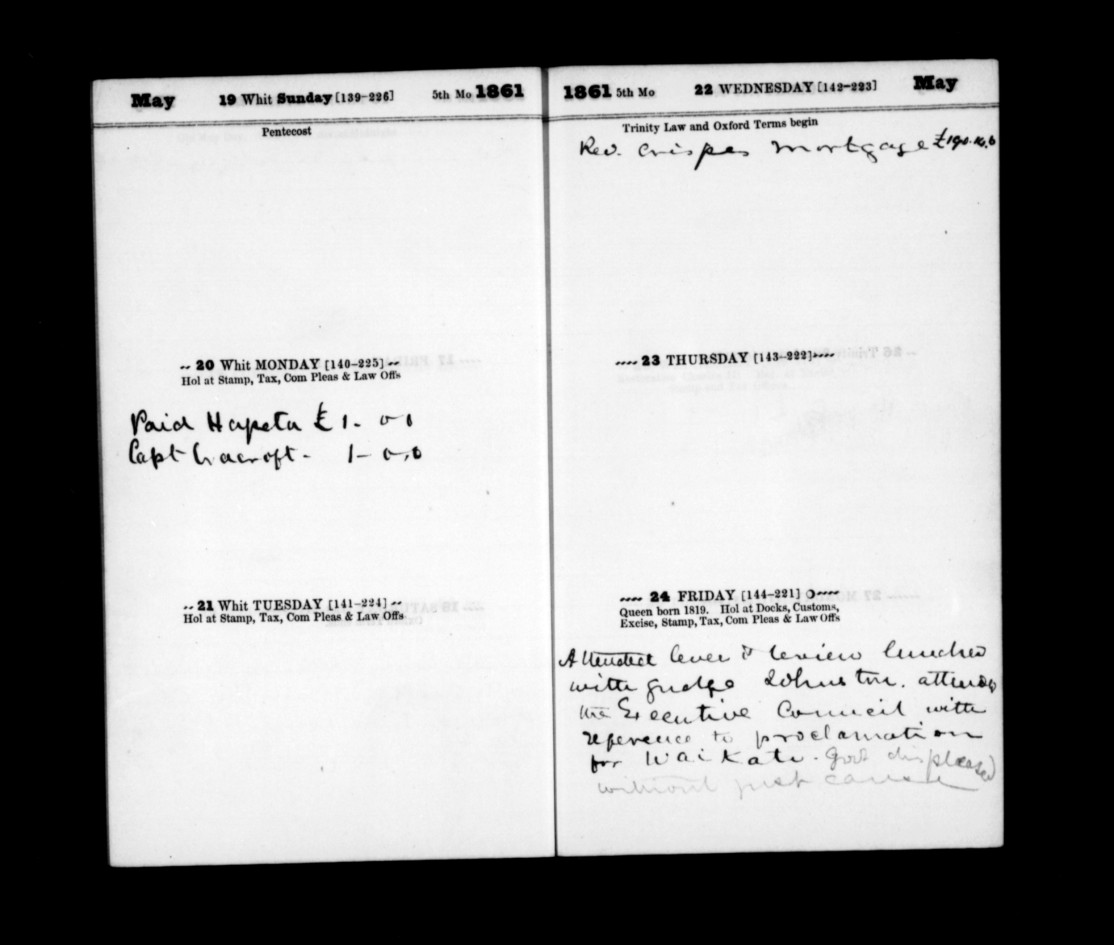 May 19 Whit Sunday [139-226] 5th Mo 1861
Pentecost
-- 20 Whit MONDAY [140-225] --
Hol at Stamp, Tax, Com Pleas & Law Offs
Paid Hapeta £1-0 0
Capt Cracroft - 1-0,0
-- 21 Whit TUESDAY [141-224] --
Hol at Stamp, Tax, Com Pleas & Law Offs
1861 5th Mo 22 WEDNESDAY [142-223] May
Trinity Law and Oxford Terms begin
Rev. Crispes Mortgage
---- 23 THURSDAY [143-222] ----
---- 24 FRIDAY [144-221] O----
Queen born 1819. Hol at Docks, Customs,
Excise, Stamp, Tax, Com Pleas & Law Offs
Attended levee & review lunched
with Judge Johnston. attended
the Executive Council with
reference to proclamation
for Waikato. Govt displeased
without just cause